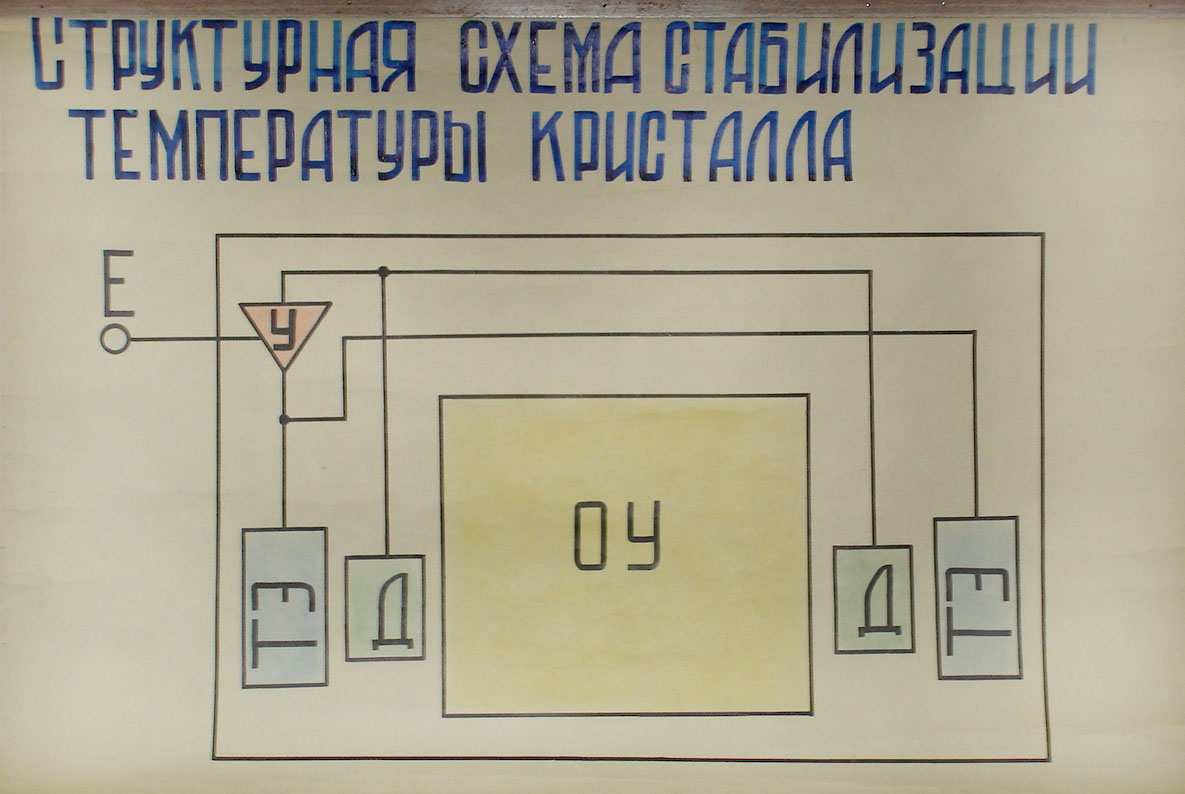 СТРУКТУРНАЯ СХЕМА СТАБИЛИЗАЦИИ
ТЕМПЕРАТУРЫ КРИСТАЛЛА
E
У
ОУ
ТЭ
Д
Д
ТЭ